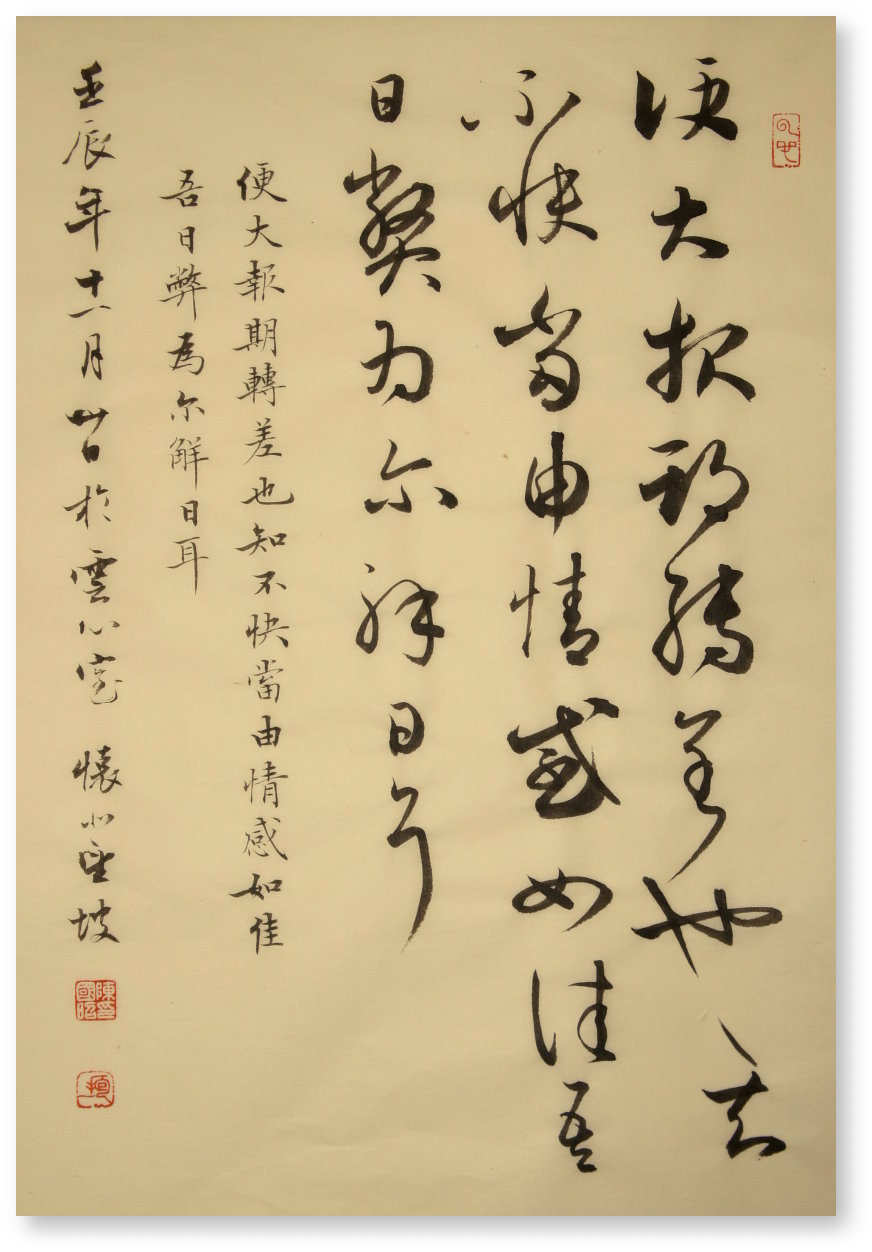 便大報期轉差也知
不快當由情感如佳吾
日弊为尔解日耳
便大報期轉差也知不快當由情感如佳
吾日弊為尔解日耳
壬辰年十一月廿日於雲心室 懷坡
陳國昭印